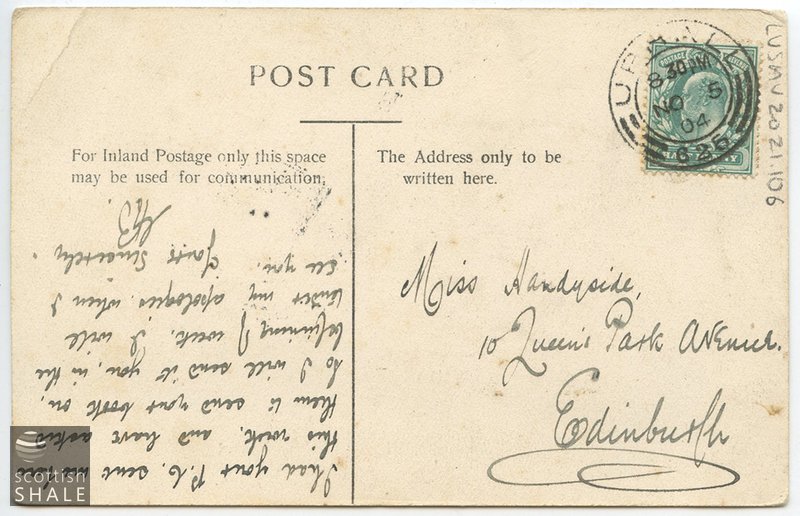 POST CARD
For Inland Postage only this space
may be used for communication.
The Address only to be
written here.
UPHALL
8.30PM
NO 5
04
626
LUSMV2021.106
Miss Handyside,
10 Queen's Park Avenue.
Edinburgh
I had your P.C. sent me here
this week, and have asked
them to send your book on,
so I will send it you, in the
beginning of week. I will
tender my apologies when I
see you.
Yours Sincerely.
scottish
SHALE